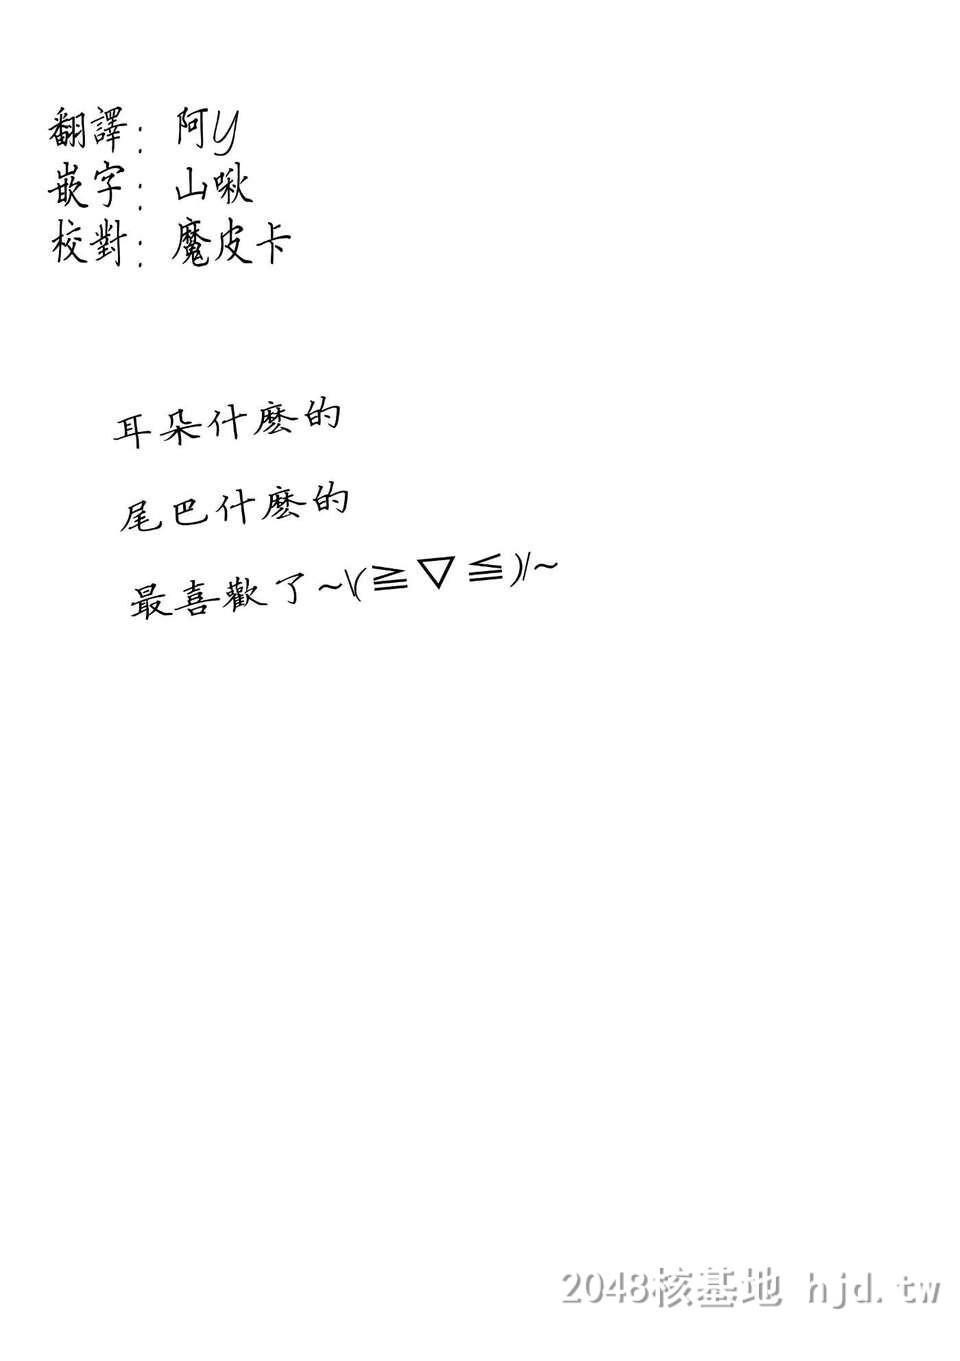 翻譯：阿Y
嵌字：山啾
校對：魔皮卡
耳朵什麽的
尾巴什麽的
最喜歡了~\(≧▽≦)/~
2048核基地 hjd.tw